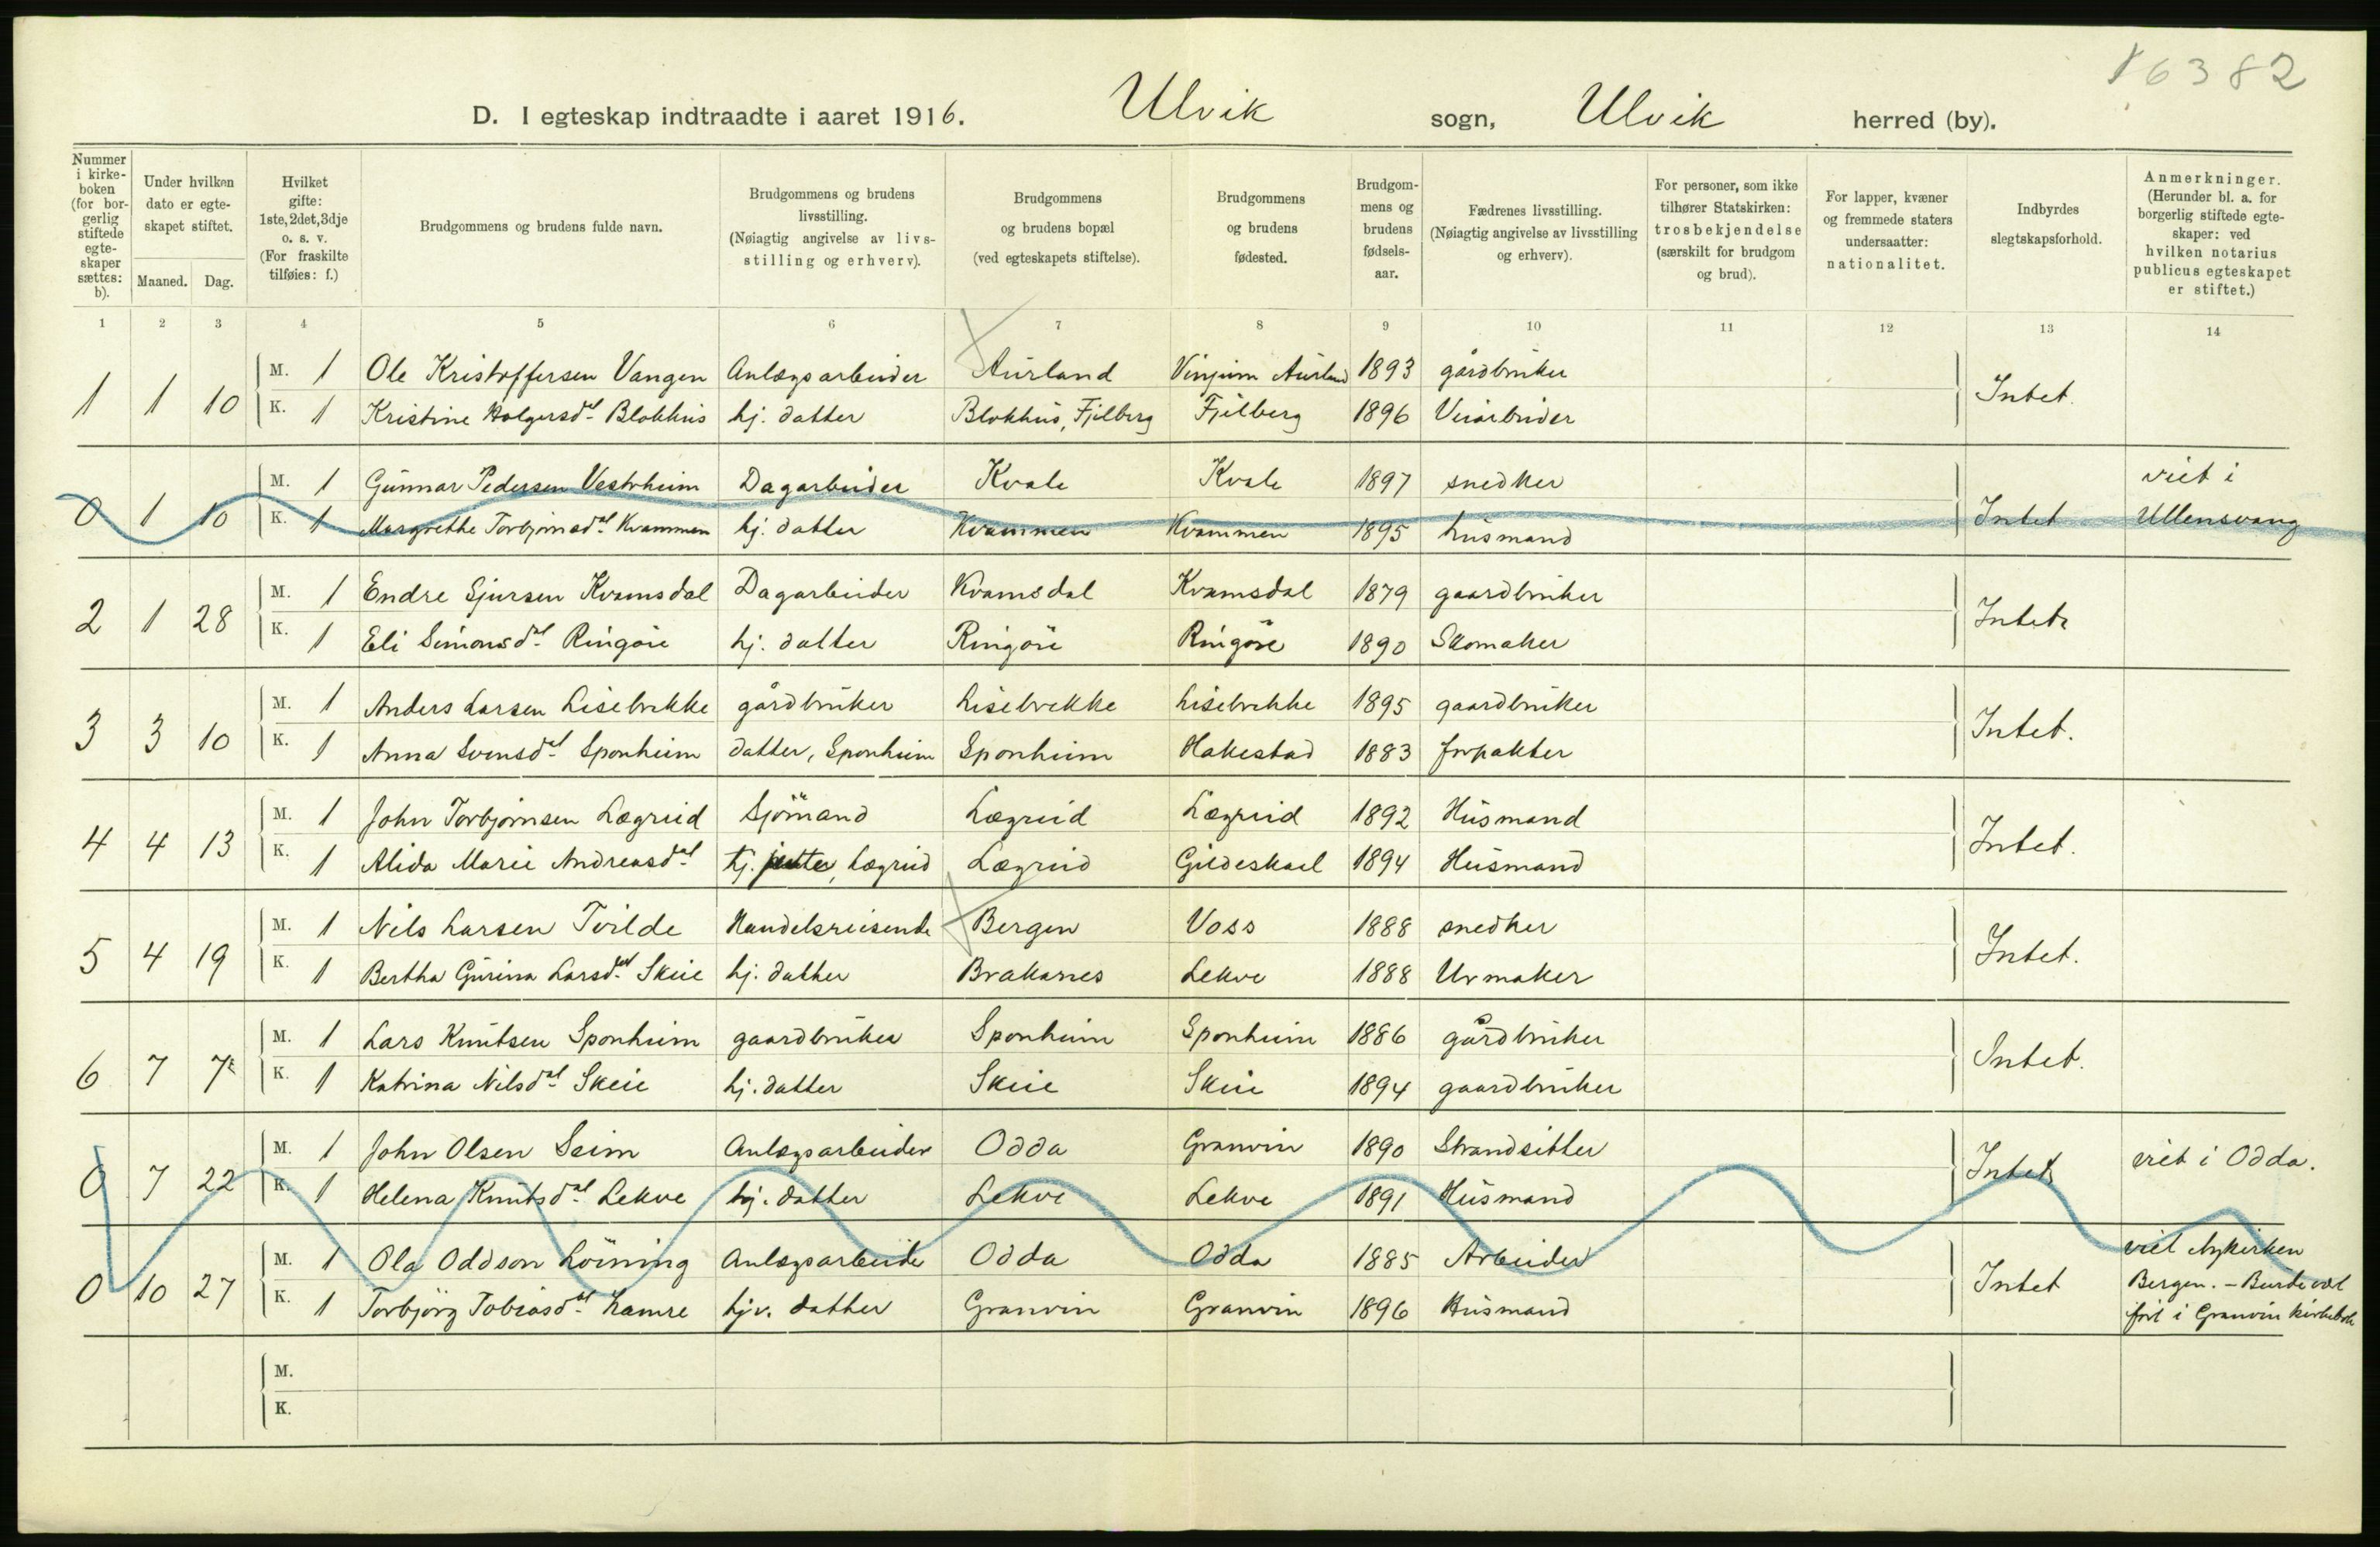 16382
D. I egteskap indtraadte i aaret 1916. Ulvik sogn, Ulvik herred (by).
Nummer i kirkeboken (for borgerlig stiftede egteskaper sættes: b).
Under hvilken dato er egteskapet stiftet.
Maaned. Dag.
Hvilket gifte: 1ste, 2det, 3dje o. s. v. (For fraskilte tilføies: f.)
Brudgommens og brudens fulde navn.
Brudgommens og brudens livsstilling. (Nøiagtig angivelse av livsstilling og erhverv).
Brudgommens og brudens bopæl (ved egteskapets stiftelse).
Brudgommens og brudens fødested.
Brudgommens og brudens fødselsaar.
Fædrenes livsstilling. (Nøiagtig angivelse av livsstilling og erhverv).
For personer, som ikke tilhører Statskirken: trosbekjendelse (særskilt for brudgom og brud).
For lapper, kvæner og fremmede staters undersaatter: nationalitet.
Indbyrdes slegtskapsforhold.
Anmerkninger. (Herunder bl. a. for borgerlig stiftede egteskaper: ved hvilken notarius publicus egteskapet er stiftet.)
1 2 3 4 5 6 7 8 9 10 11 12 13 14
1 1 10 M. 1 Ole Kristoffersen Vangen Anlægsarbeider Aurland Vinjum Aurland 1893 gårdbruker Intet.
K. 1 Kristine Holgersdtr Blokhus hj. datter Blokhus, Fjelberg Fjelberg 1896 Veiarbeider
0 1 10 M. 1 Gunnar Pedersen Vestrheim Dagarbeider Kvale Kvale 1897 snedker Intet viet i
K. 1 Margrethe Torbjørnsdtr Kvammen hj. datter Kvammen Kvammen 1895 husmand Ullensvang
2 1 28 M. 1 Endre Sjursen Kvamsdal Dagarbeider Kvamsdal Kvamsdal 1879 gaardbruker Intet
K. 1 Eli Simonsdtr Ringøie hj. datter Ringøie Ringøie 1890 Skomaker
3 3 10 M. 1 Anders Larsen Lisebrekke gårdbruker Lisebrekke Lisebrekke 1895 gaardbruker Intet.
K. 1 Anna Svensdtr Sponheim datter, Sponheim Sponheim Hakestad 1883 forpakter
4 4 13 M. 1 John Torbjørnsen Lægreid Sjømand Lægreid Lægreid 1892 Husmand Intet.
K. 1 Alida Marie Andreasdtr hj. Lægreid Lægreid Gildeskael 1894 Husmand
5 4 19 M. 1 Nils Larsen Tvilde Handelsreisende Bergen Voss 1888 snedker Intet.
K. 1 Bertha Gurina Larsdtr Skeie hj. datter Brakanes Lekve 1888 Urmaker
6 7 7 M. 1 Lars Knutsen Sponheim gaardbruker Sponheim Sponheim 1886 gårdbruker Intet.
K. 1 Katrina Nilsdtr Skeie hj. datter Skeie Skeie 1894 gaardbruker
0 7 22 M. 1 John Olsen Seim Anlægsarbeider Odda Granvin 1890 Strandsitter Intet viet i Odda.
K. 1 Helena Knutsdtr Lekve hj. datter Lekve Lekve 1891 Husmand
0 10 27 M. 1 Ola Oddson Løining Anlægsarbeider Odda Odda 1885 Arbeider Intet viet Nykirken
K. 1 Torbjørg Tobiasdtr Hamre hjv. datter Granvin Granvin 1896 Husmand Bergen. –
i Granvin kirkebok
M.
K.